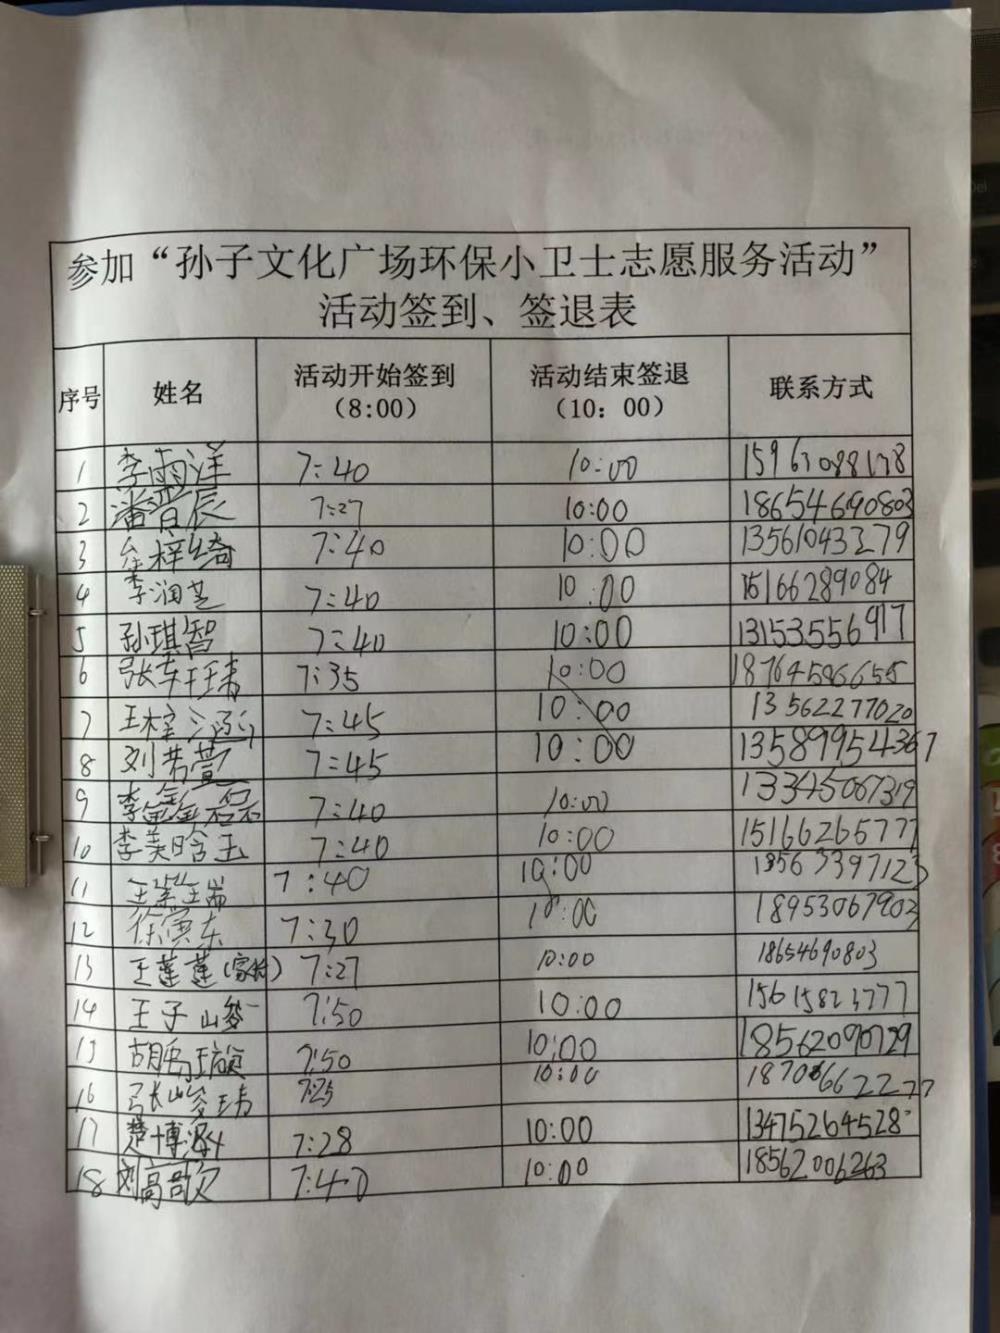 参加“孙子文化广场环保小卫士志愿服务活动”
活动签到、签退表
序号 姓名 活动开始签到 (8:00) 活动结束签退 (10：00) 联系方式
1 李雨洋 7:40 10:00
2 潘晋辰 7:27 10:00 18654690803
3 牟梓绮 7:40 10:00 13561043279
4 李润芝 7:40 10:00 15166289084
5 孙琪智 7:40 10:00
6 7:35 10:00 18764586655
7 7:45 10:00 13562277020
8 刘芳萱 7:45 10:00 13589954367
9 李鑫磊 7:40 10:00 13345067319
10 李美晗玉 7:40 10:00 15166265777
11 王紫瑞 7:40 10:00 18563397123
12 徐寅东 7:30 10:00 18953067903
13 王莲莲(家长) 7:27 10:00 18654690803
14 王子峻 7:50 10:00 15615823777
15 胡禹璇 7:50 10:00 18562090729
16 张峻玮 7:25 10:00
17 楚博 7:28 10:00 13475264528
18 刘高歌 7:40 10:00 18562006263